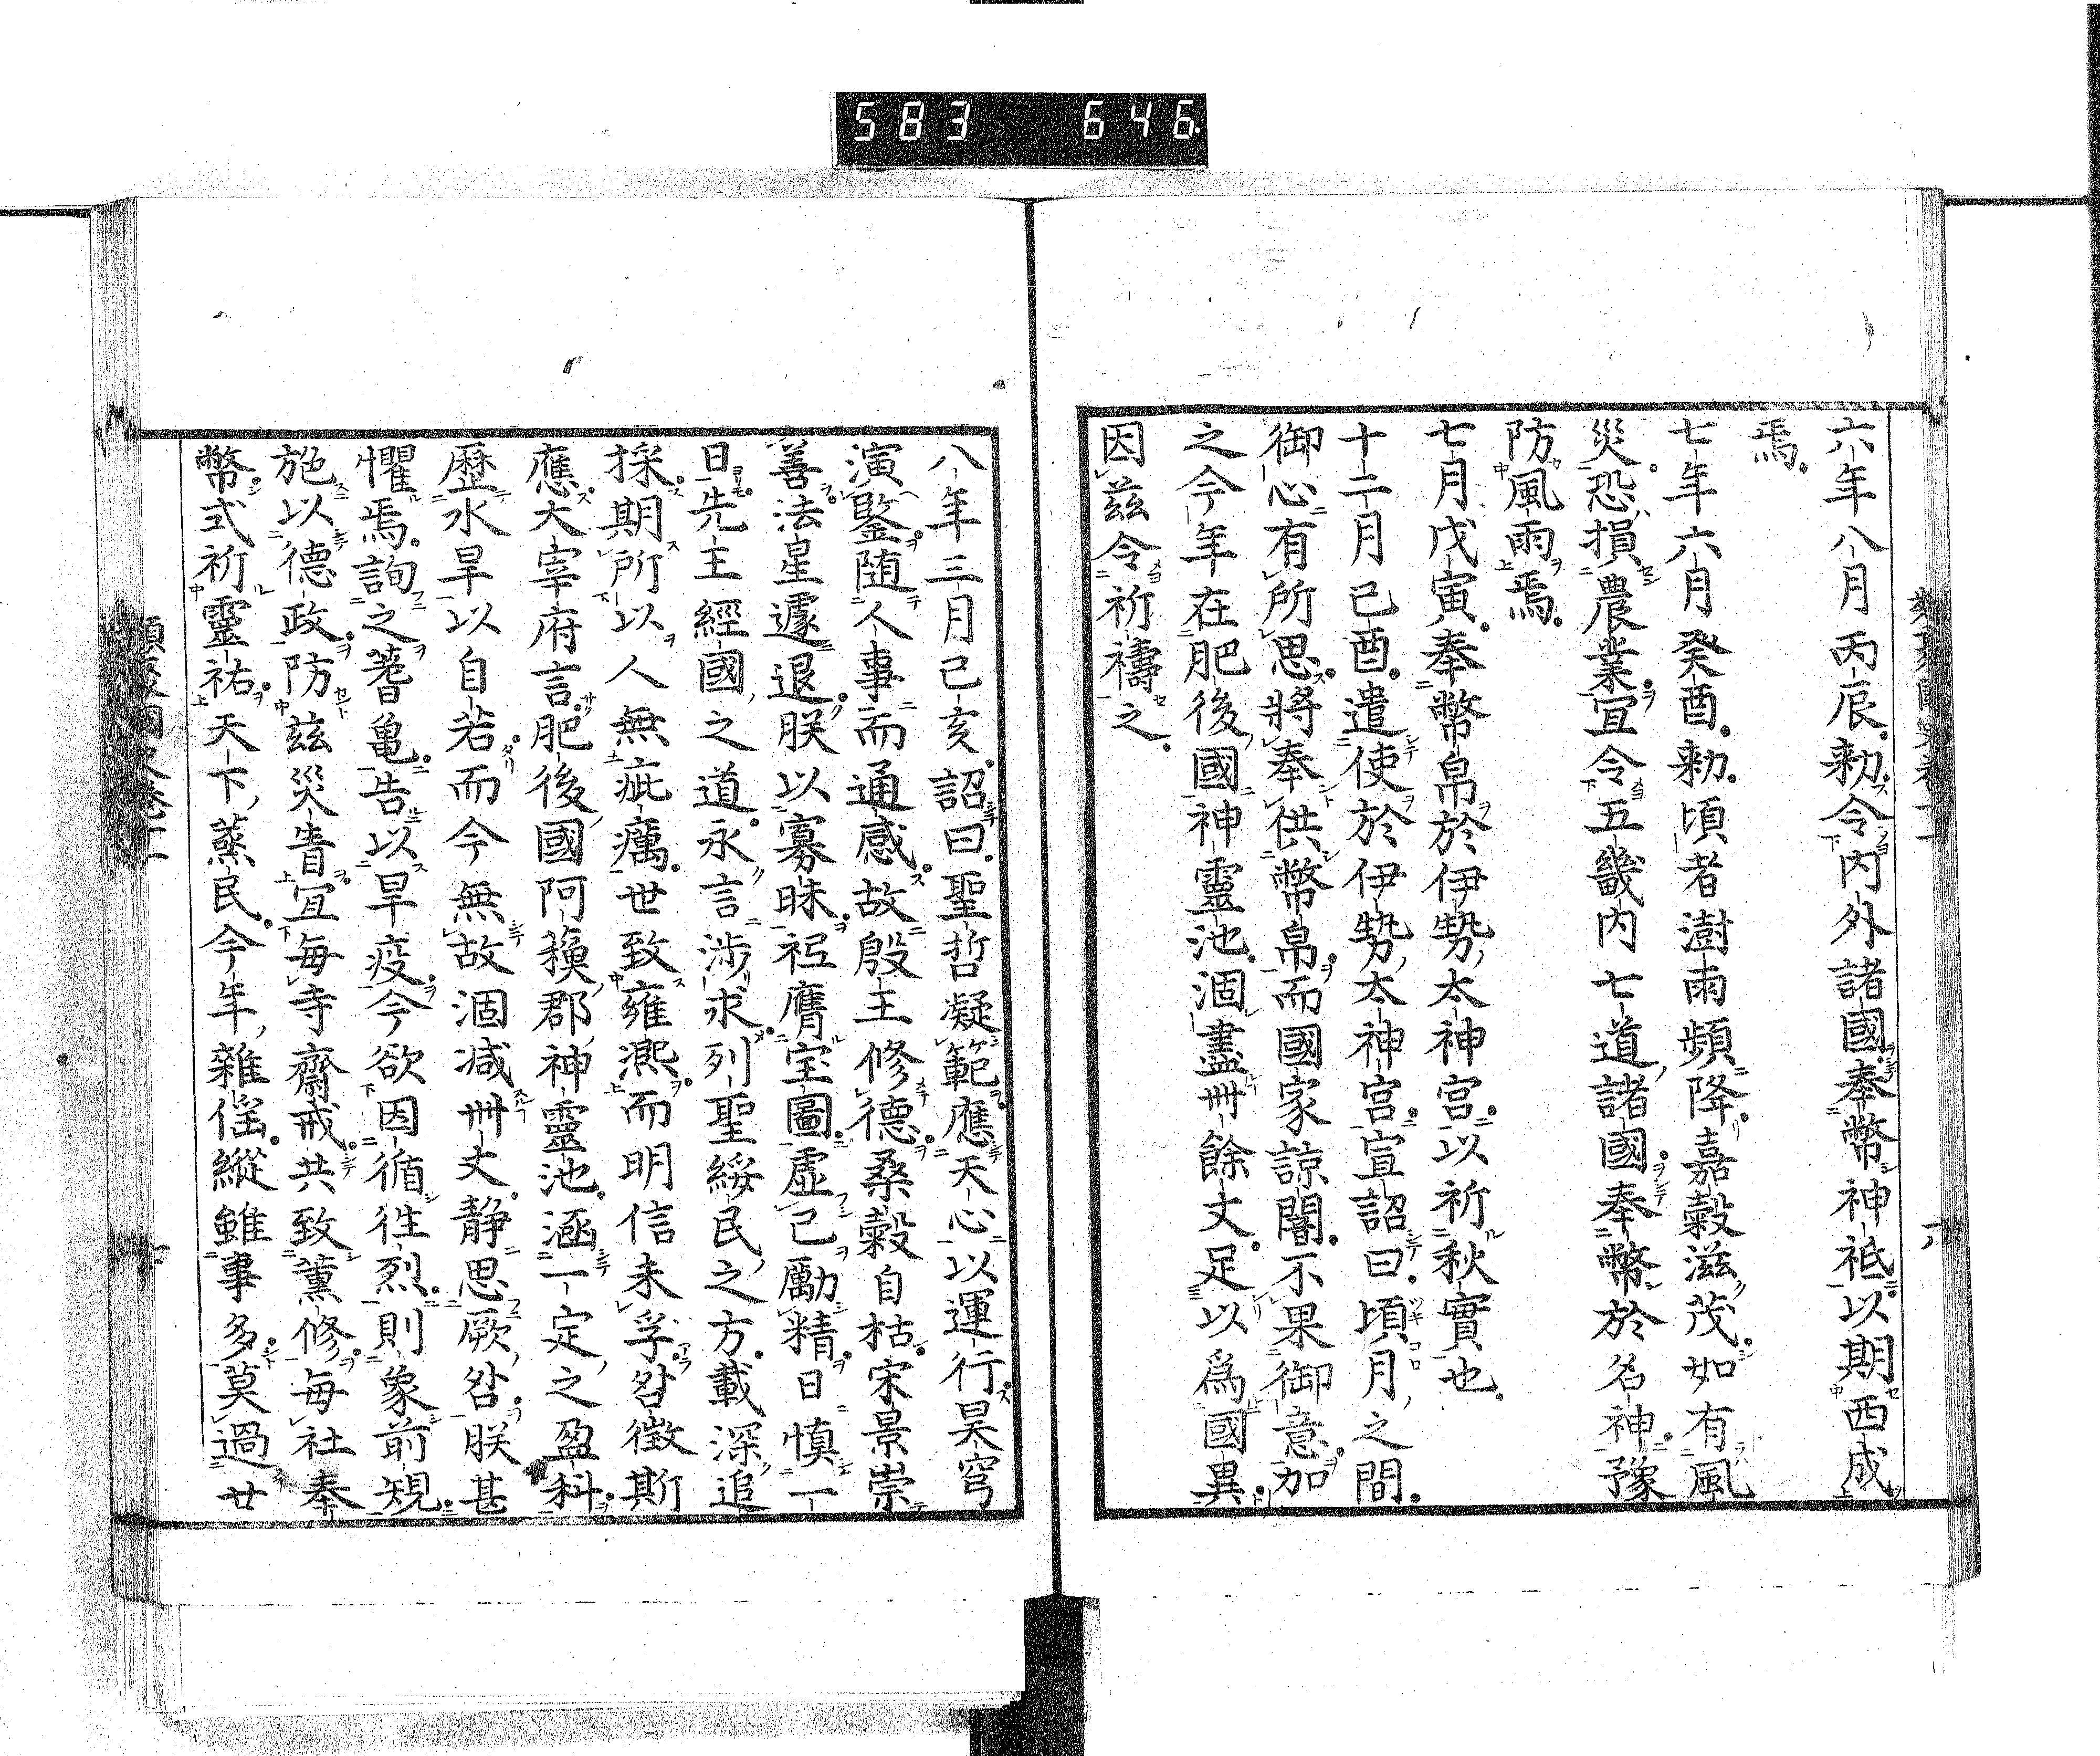 583 646
六年八月丙辰勅令内外諸國奉幣神祇以期西成
焉
七年六月癸酉勅頃者澍雨頻降嘉穀滋茂如有風
災恐損農業宜令五畿内七道諸國奉幣於名神豫
防風雨焉
七月戊寅奉幣帛於伊勢太神宮以祈秋實也
十二月己酉遣使於伊勢太神宮宣詔曰頃月之間
御心有所思將奉供幣帛而國家諒闇不果御意加
之今年在肥後國神靈池涸盡卌餘丈足以爲國異
因茲令祈禱之
八年三月己亥詔曰聖哲凝範應天心以運行昊穹
演鑒随人事而通感故殷王修德桑穀自枯宋景崇
善法星遽退朕以寡昧祗膺宝圖虛己勵精日慎一
日先王經國之道永言涉求列聖綏民之方載深追
採期所以人無疵癘世致雍熙而明信未孚咎徴斯
應大宰府言肥後國阿蘓郡神靈池涵一定之盈科
歴水旱以自若而今無故涸减卌丈静思厥咎朕甚
懼焉詢之蓍亀告以旱疫今欲因循徃烈則象前規
施以德政防茲災眚宜毎寺齋戒共致薫修毎社奉
幣式祈靈祐天下蒸民今年雜徭縱雖事多莫過廿